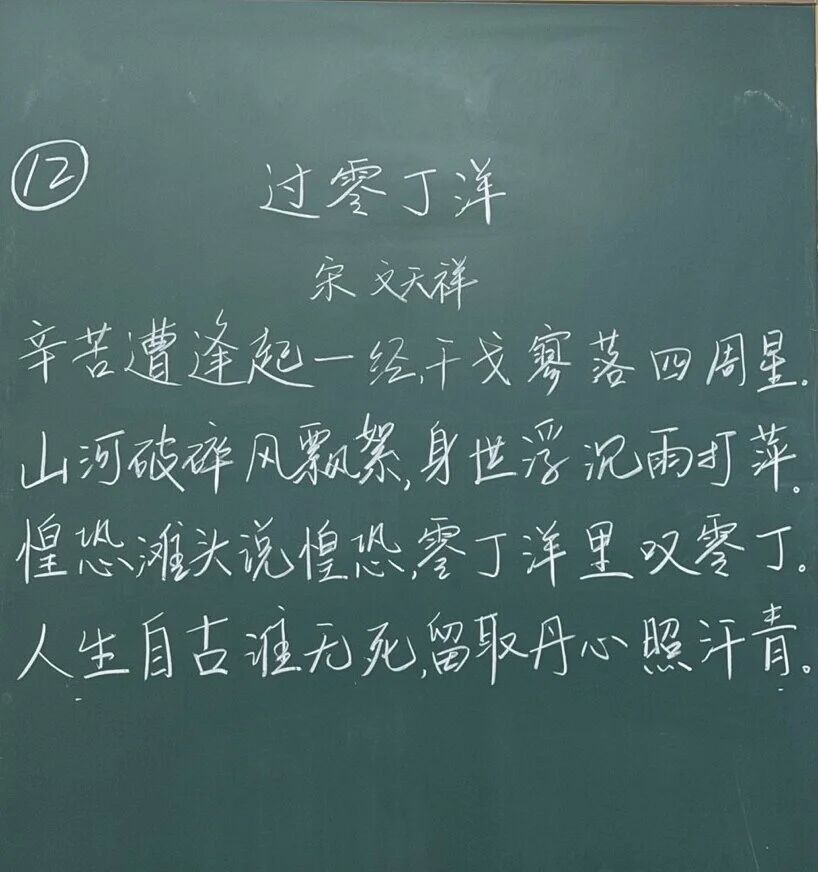 ⑫
过零丁洋
宋 文天祥
辛苦遭逢起一经,干戈寥落四周星。
山河破碎风飘絮,身世浮沉雨打萍。
惶恐滩头说惶恐,零丁洋里叹零丁。
人生自古谁无死,留取丹心照汗青。